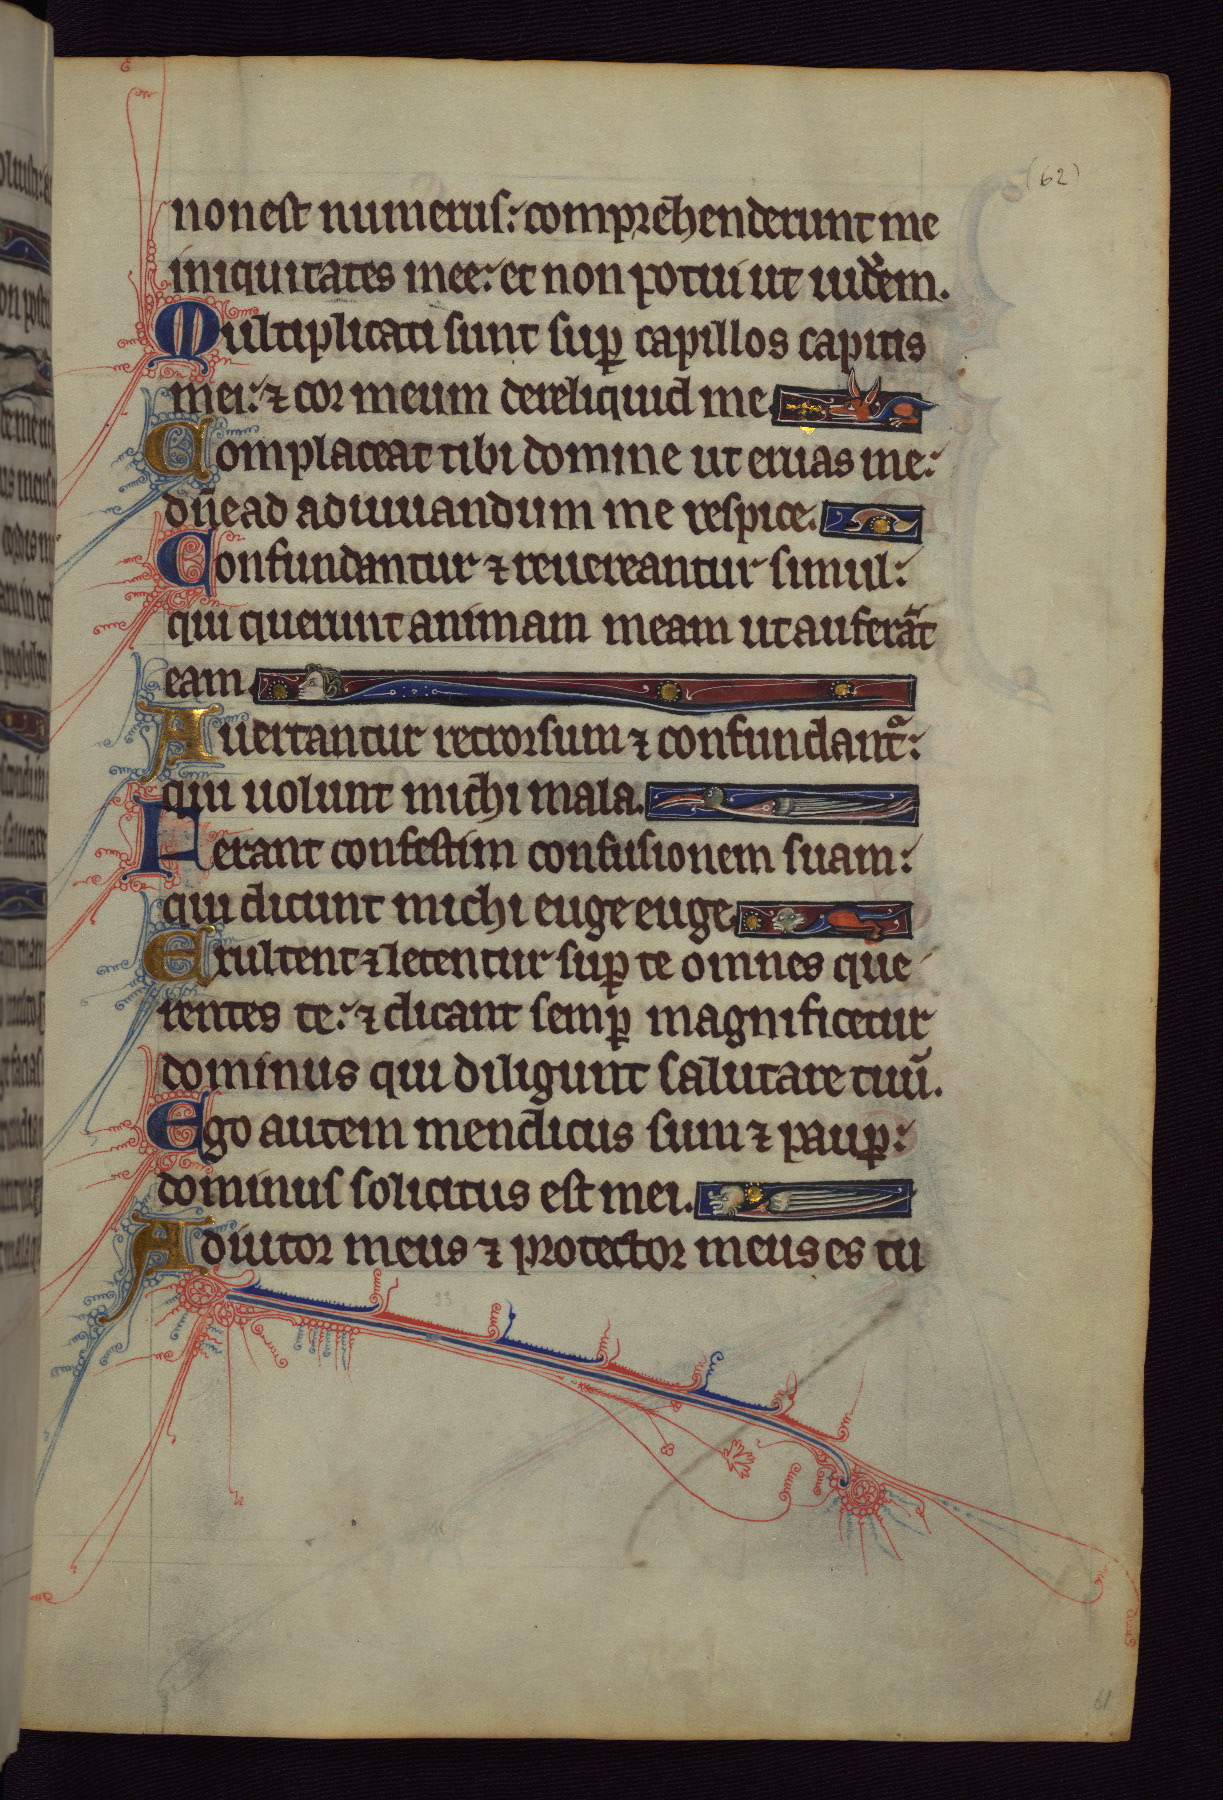 (62)
non est numerus: compreh̄enderunt me
iniquitates mee: et non potui ut uid̄em.
Multiplicati sunt sup̱ capillos capitis
mei: ⁊ cor meum dereliquid me
Complaceat tibi domine ut eruas me:
dn̄e ad adiuuandum me respice.
Confundantur ⁊ reuereantur simul:
qui querunt animam meam ut auferāt
eam.
Auertantur retrorsum ⁊ confundant᷑:
qui uolunt michi mala.
Ferant confestim confusionem suam:
qui dicunt michi euge euge
Exultent ⁊ letentur sup̱ te omnes que
rentes te: ⁊ dicant semp̱ magnificetur
dominus qui diligunt salutare tuū.
Ego autem mendicus sum ⁊ paup̱:
dominus solicitus est mei.
Adiutor meus ⁊ protector meus es tu
61